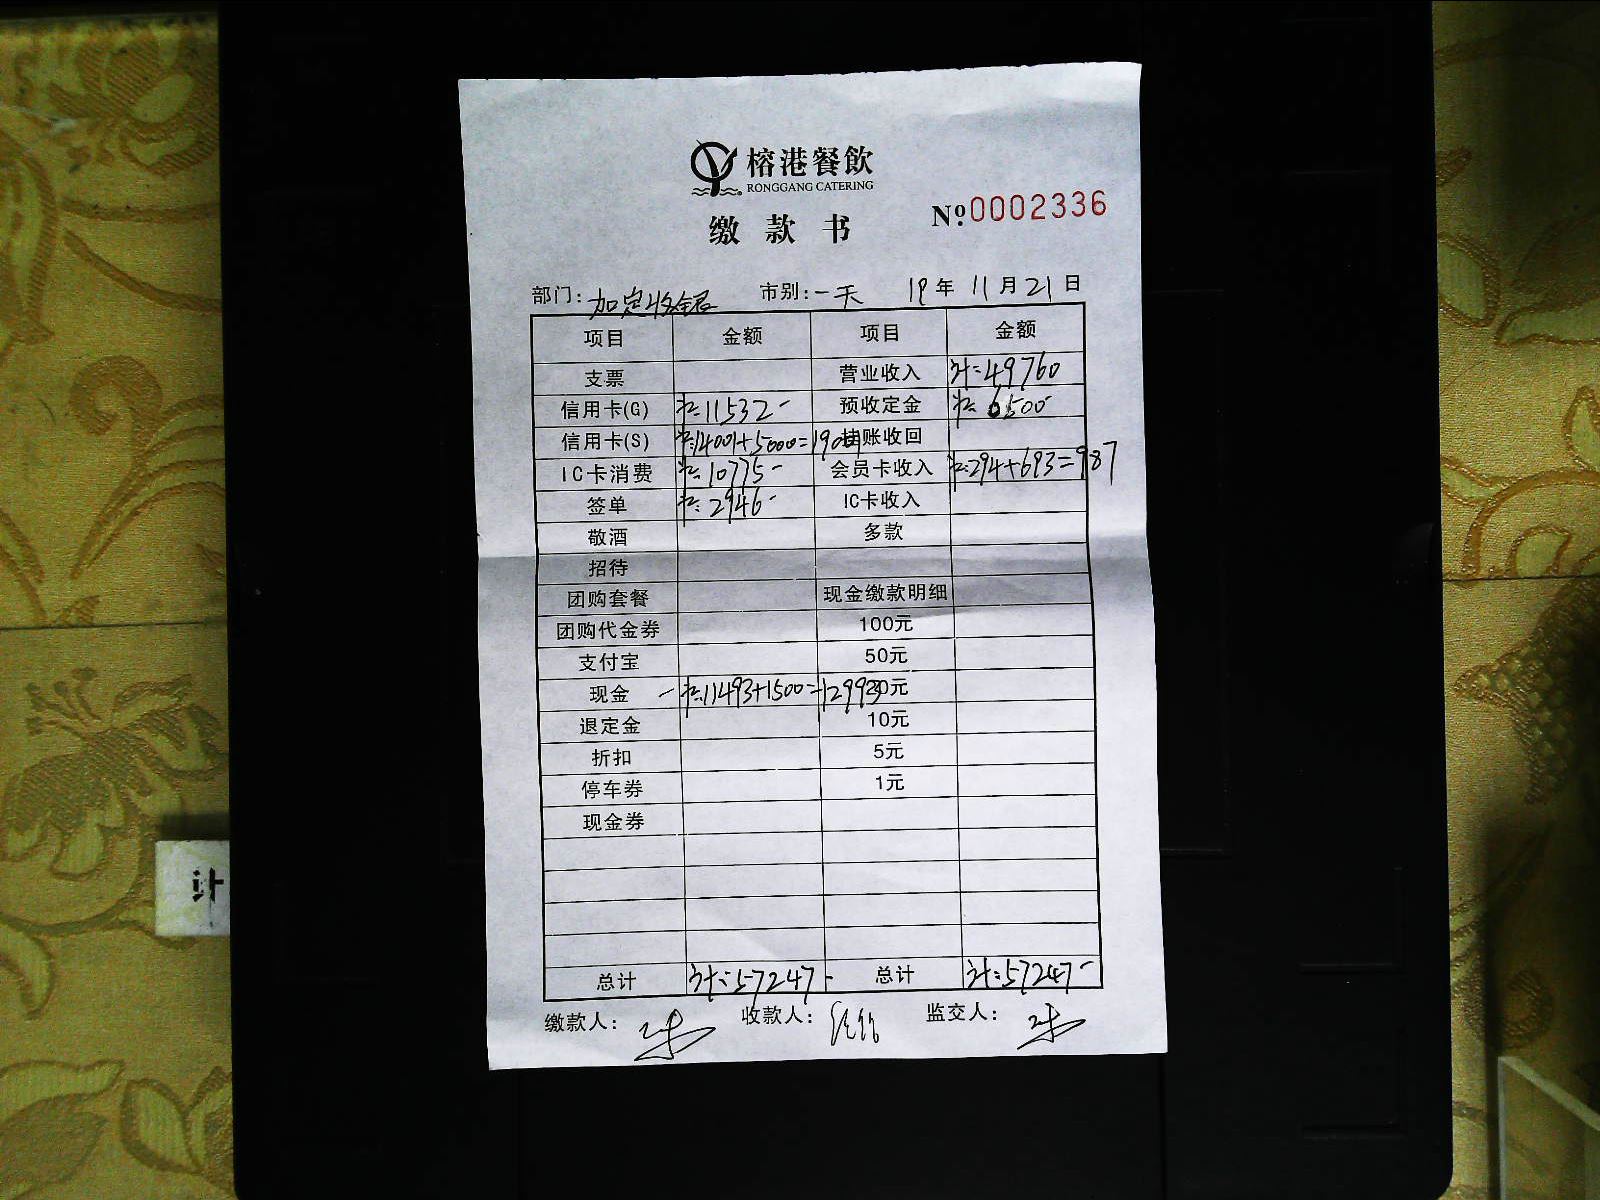 榕港餐飲
RONGGANG CATERING
缴款书
Nº 0002336
部门: 加定收银 市别: 一天 19年 11月 21日
项目 金额 项目 金额
支票 营业收入 计:49760
信用卡(G) 计:11532- 预收定金 计:6500-
信用卡(S) 计:14001+5000=19001 挂账收回
IC卡消费 计:10775- 会员卡收入 计:294+693=987
签单 计:2946- IC卡收入
敬酒 多款
招待
团购套餐 现金缴款明细
团购代金券 100元
支付宝 50元
现金 计:11493+1500=12993 20元
退定金 10元
折扣 5元
停车券 1元
现金券
总计 计:57247- 总计 计:57247-
缴款人: 收款人: 监交人:
计